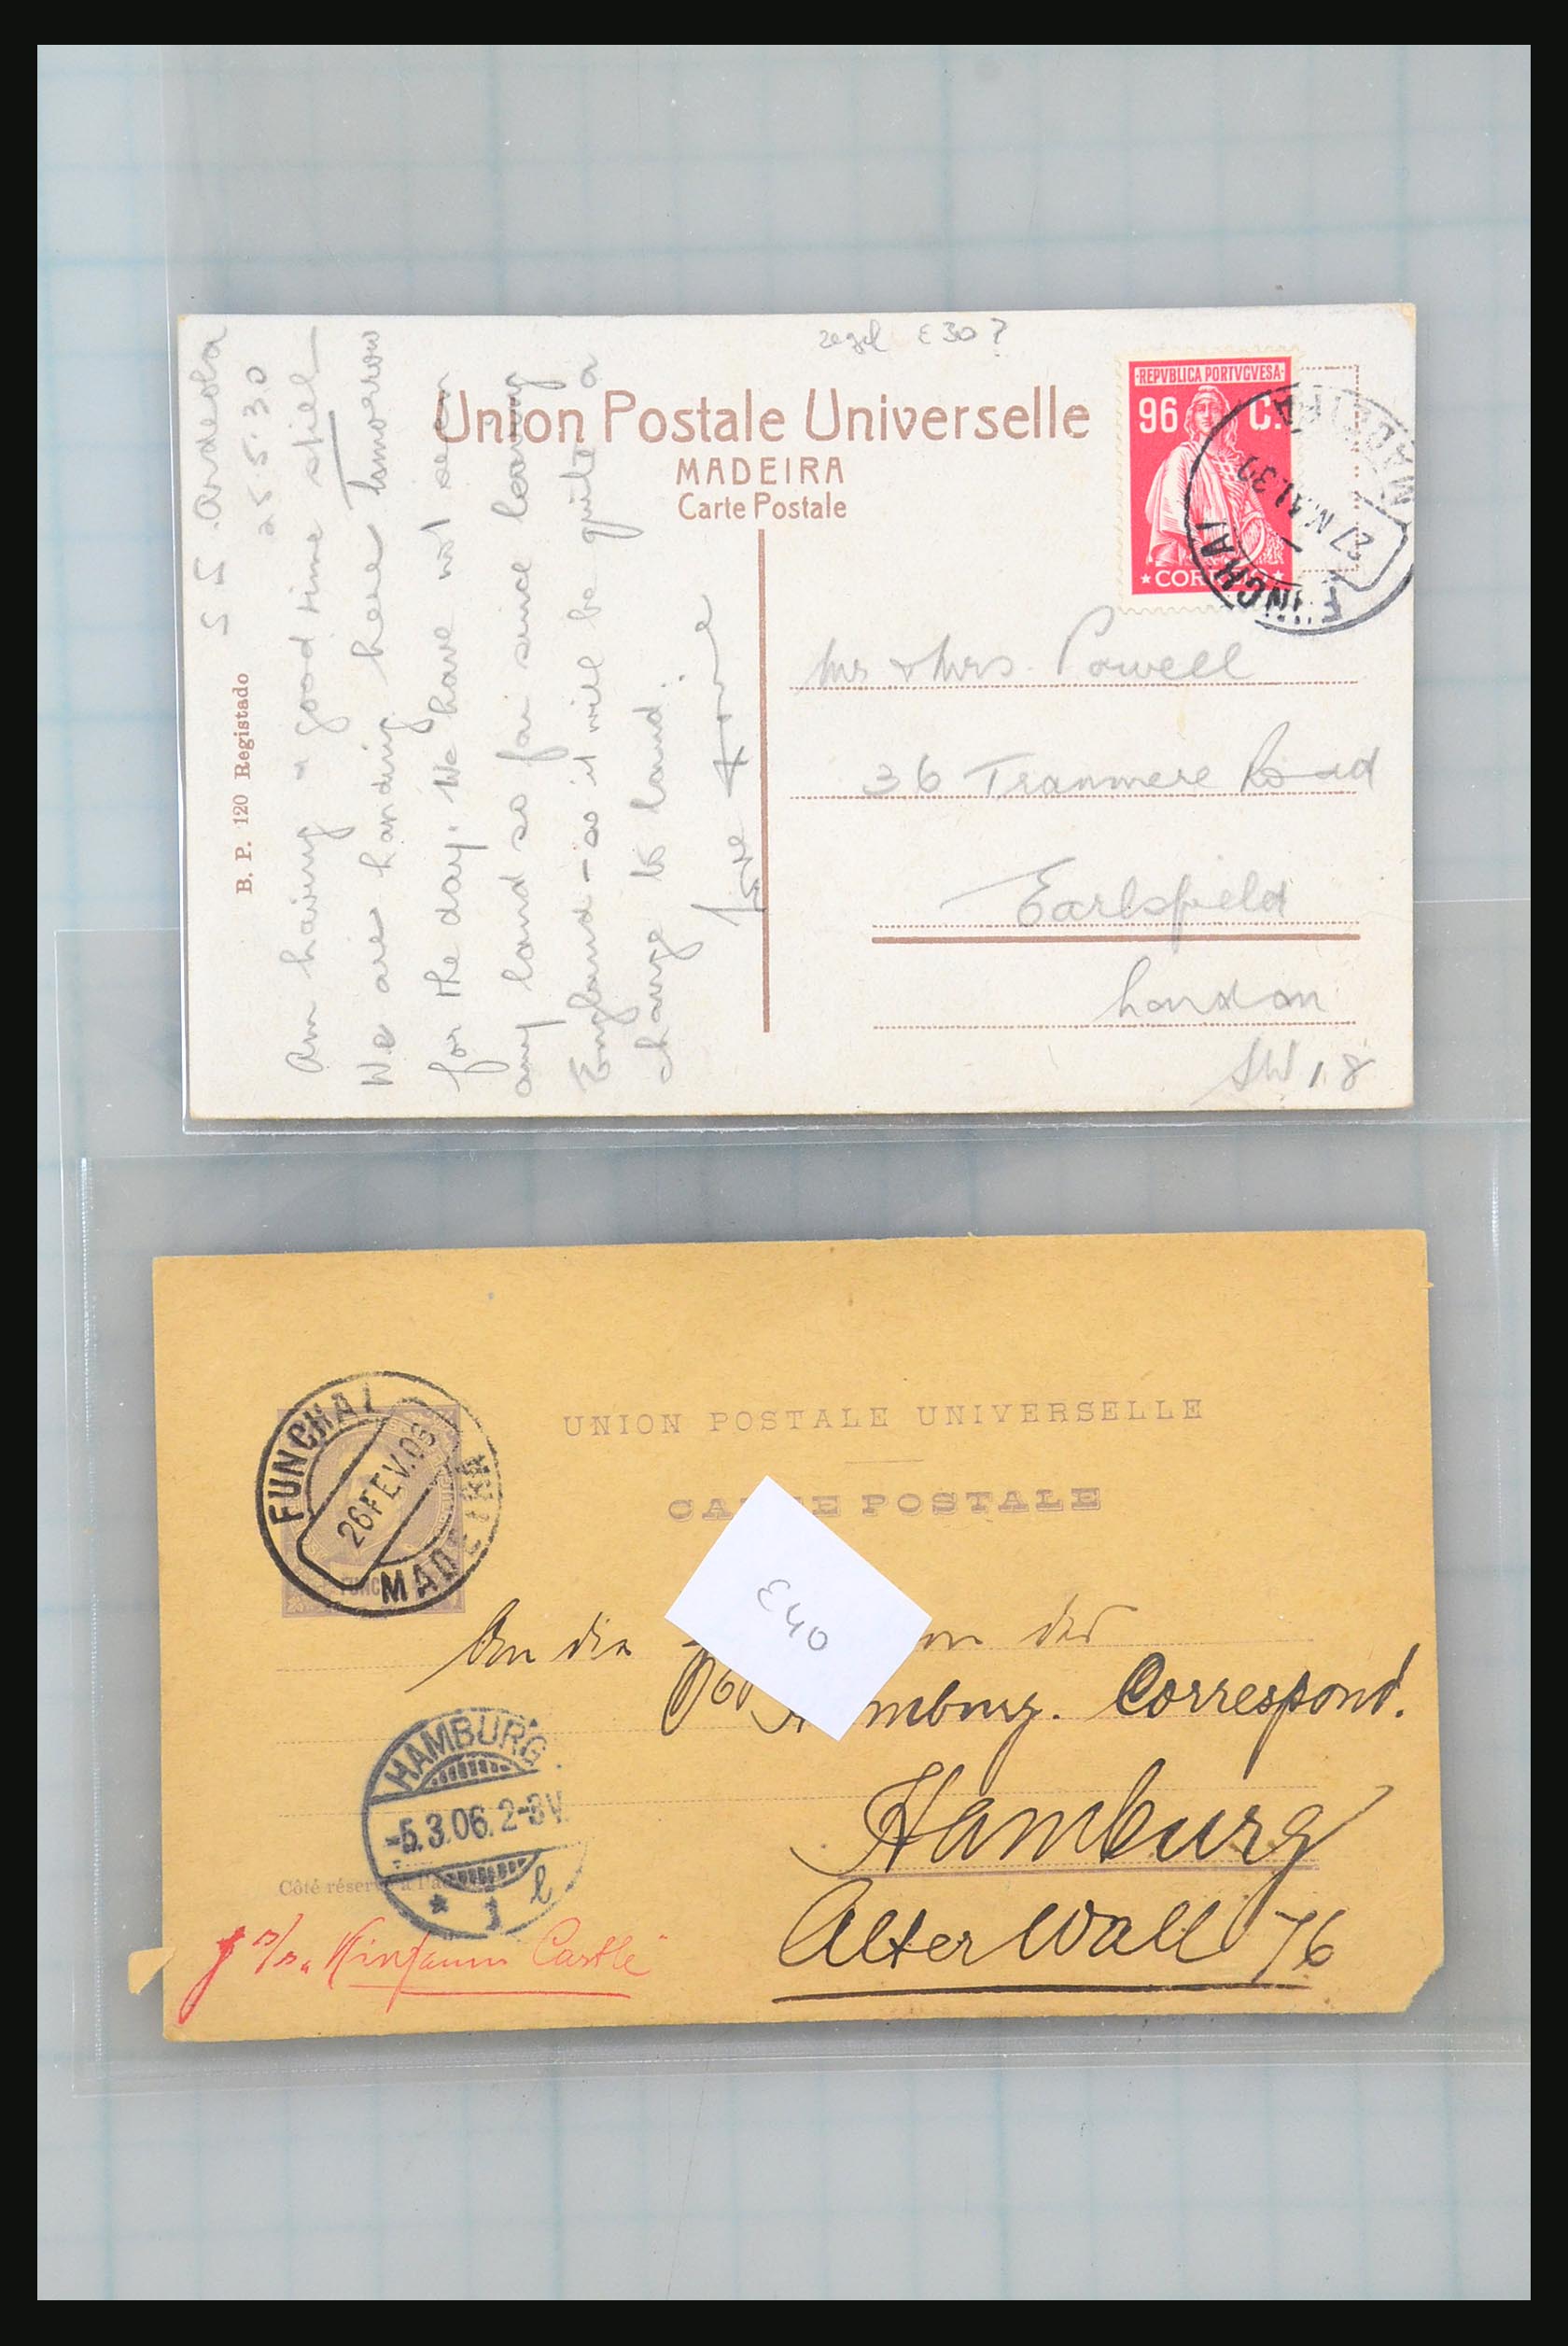 zegel £30?
Union Postale Universelle
MADEIRA
Carte Postale
REPVBLICA PORTVGVESA
96 C.
CORREIO
FUNCHAL
27 MAI.30
MADEIRA
B. P. 120 Registado
S.S. Ardeola
25.5.30
Am having a good time still
We are landing here tomorrow
for the day. We have not seen
any land so far since leaving
England - so it will be quite a
change to land.
Love
Mr & Mrs. Powell
36 Tranmere Road
Earlsfield
London
SW18
FUNCHAL
26 FEV.06
MADEIRA
UNION POSTALE UNIVERSELLE
CARTE POSTALE
£40
An die
on des
Hamburg. Correspond.
Hamburg
Alter Wall 76
HAMBURG
-5.3.06.2-3V.
* 1 l
Côté réservé à l'a
p s/s "Kinfauns Castle"